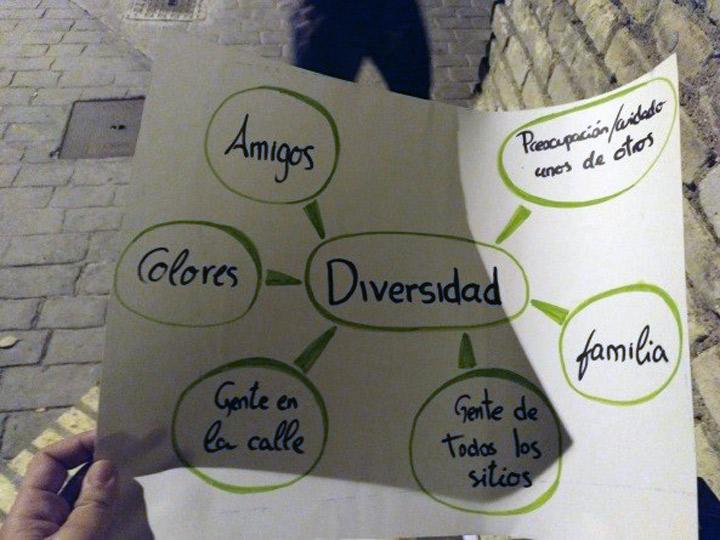 Amigos
Preocupación/cuidado
unos de otros
Colores
Diversidad
familia
Gente en
la calle
Gente de
Todos los
sitios